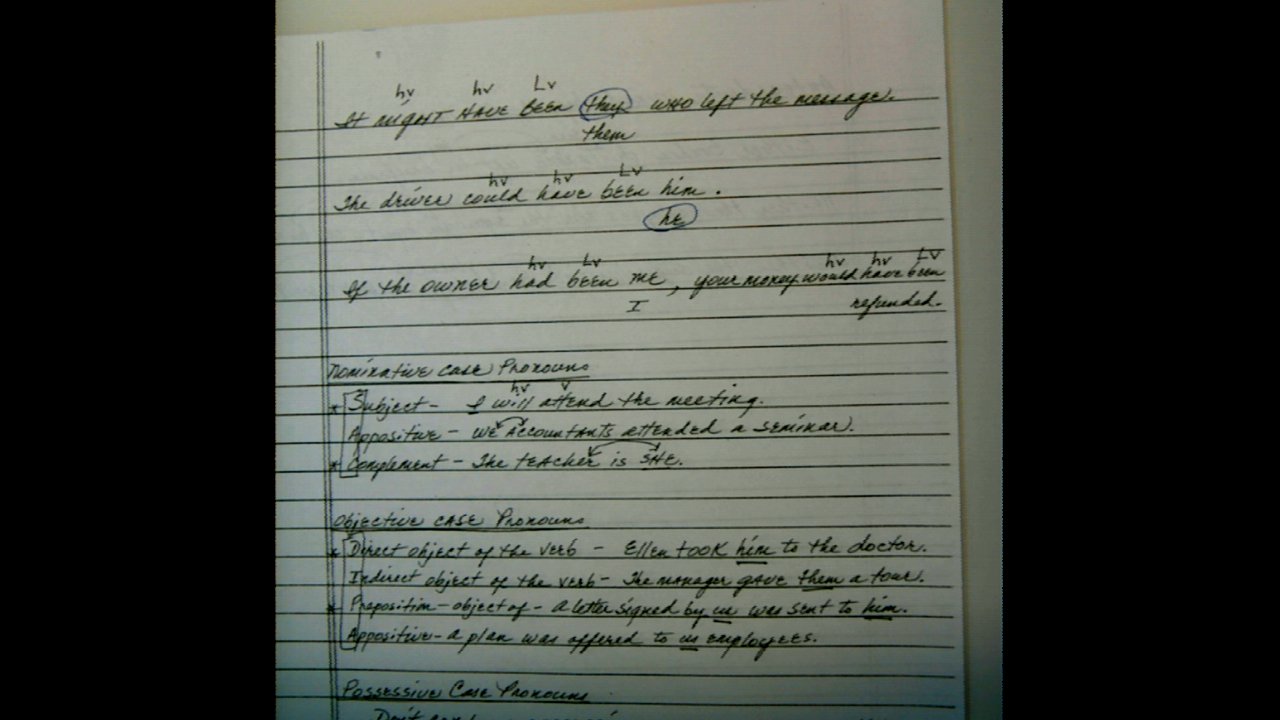 hv hv Lv
It might HAVE BEEN they who left the message.
them
hv hv Lv
The driver could have been him.
he
hv Lv hv hv LV
If the owner had been me, your money would have been
I refunded.
Nominative Case Pronouns
hv v
* Subject - I will attend the meeting.
Appositive - we Accountants attended a seminar.
* Complement - The teacher is SHE.
Objective CASE Pronouns
* Direct object of the verb - Ellen took him to the doctor.
Indirect object of the verb - The manager gave them a tour.
* Preposition - object of - A letter signed by us was sent to him.
Appositive - a plan was offered to us employees.
Possessive Case Pronouns
Don't